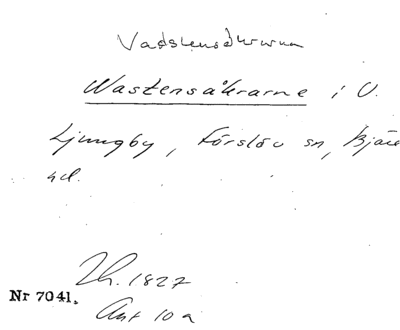 Vadstensåkrarna
Wastensåkrarne i V.
Ljungby, Förslöv sn, Bjäre
hd.
Lh. 1827
Nr 7041.
Ant 10 a